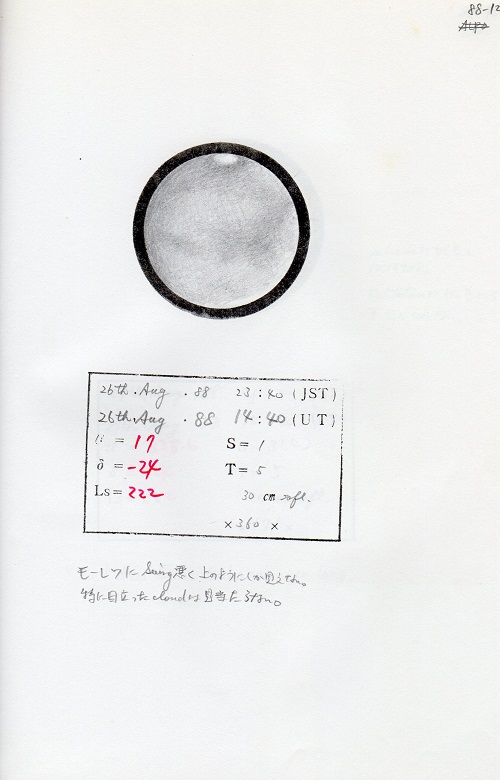 88-12
26th. Aug. 88 23:40 (JST)
26th. Aug. 88 14:40 (UT)
= 17 S= 1
δ = -24 T= 5
Ls= 222 30 cm refl.
×360 ×
モーレツに Seeing悪く上のようにしか見えない。
特に目立ったcloudは見当たらない。